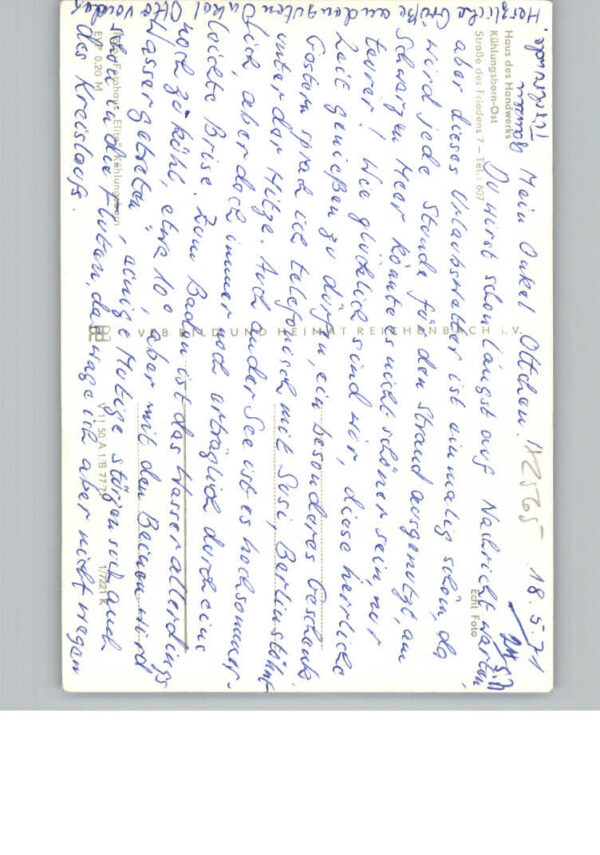 Haus des Handwerks
Kühlungsborn-Ost
Straße des Friedens 7 – Tel.: 607
Mein Onkel Ottchen! 18.5.71
Du wirst schon längst auf Nachricht warten,
aber dieses Urlaubswetter ist einmalig schön, da
wird jede Stunde für den Strand ausgenutzt, am
Schwarzen Meer könnte es nicht schöner sein, nur
teurer! Wie glücklich sind wir, diese herrliche
Zeit genießen zu dürfen, ein besonderes Geschenk.
Gestern sprach ich telefonisch mit Susi, Berlin stöhnt
unter der Hitze. Auch an der See ist es hochsommer-
lich, aber doch immer noch erträglich durch eine
leichte Brise. Zum Baden ist das Wasser allerdings
noch zu kühl, etwa 10°, aber mit den Beinen wird
Wasser getreten, einige Mutige stürzen sich auch
schon in die Fluten, das wage ich aber nicht wegen
des Kreislaufs.
Herzliche Grüße an den guten Onkel Otto von der
Echt Foto
VEB BILD UND HEIMAT REICHENBACH i. V.
Fotohaus „Elite“ Kühlungsborn
EVP 0,20 M
V 11 50 A 1 B
1/7221 K